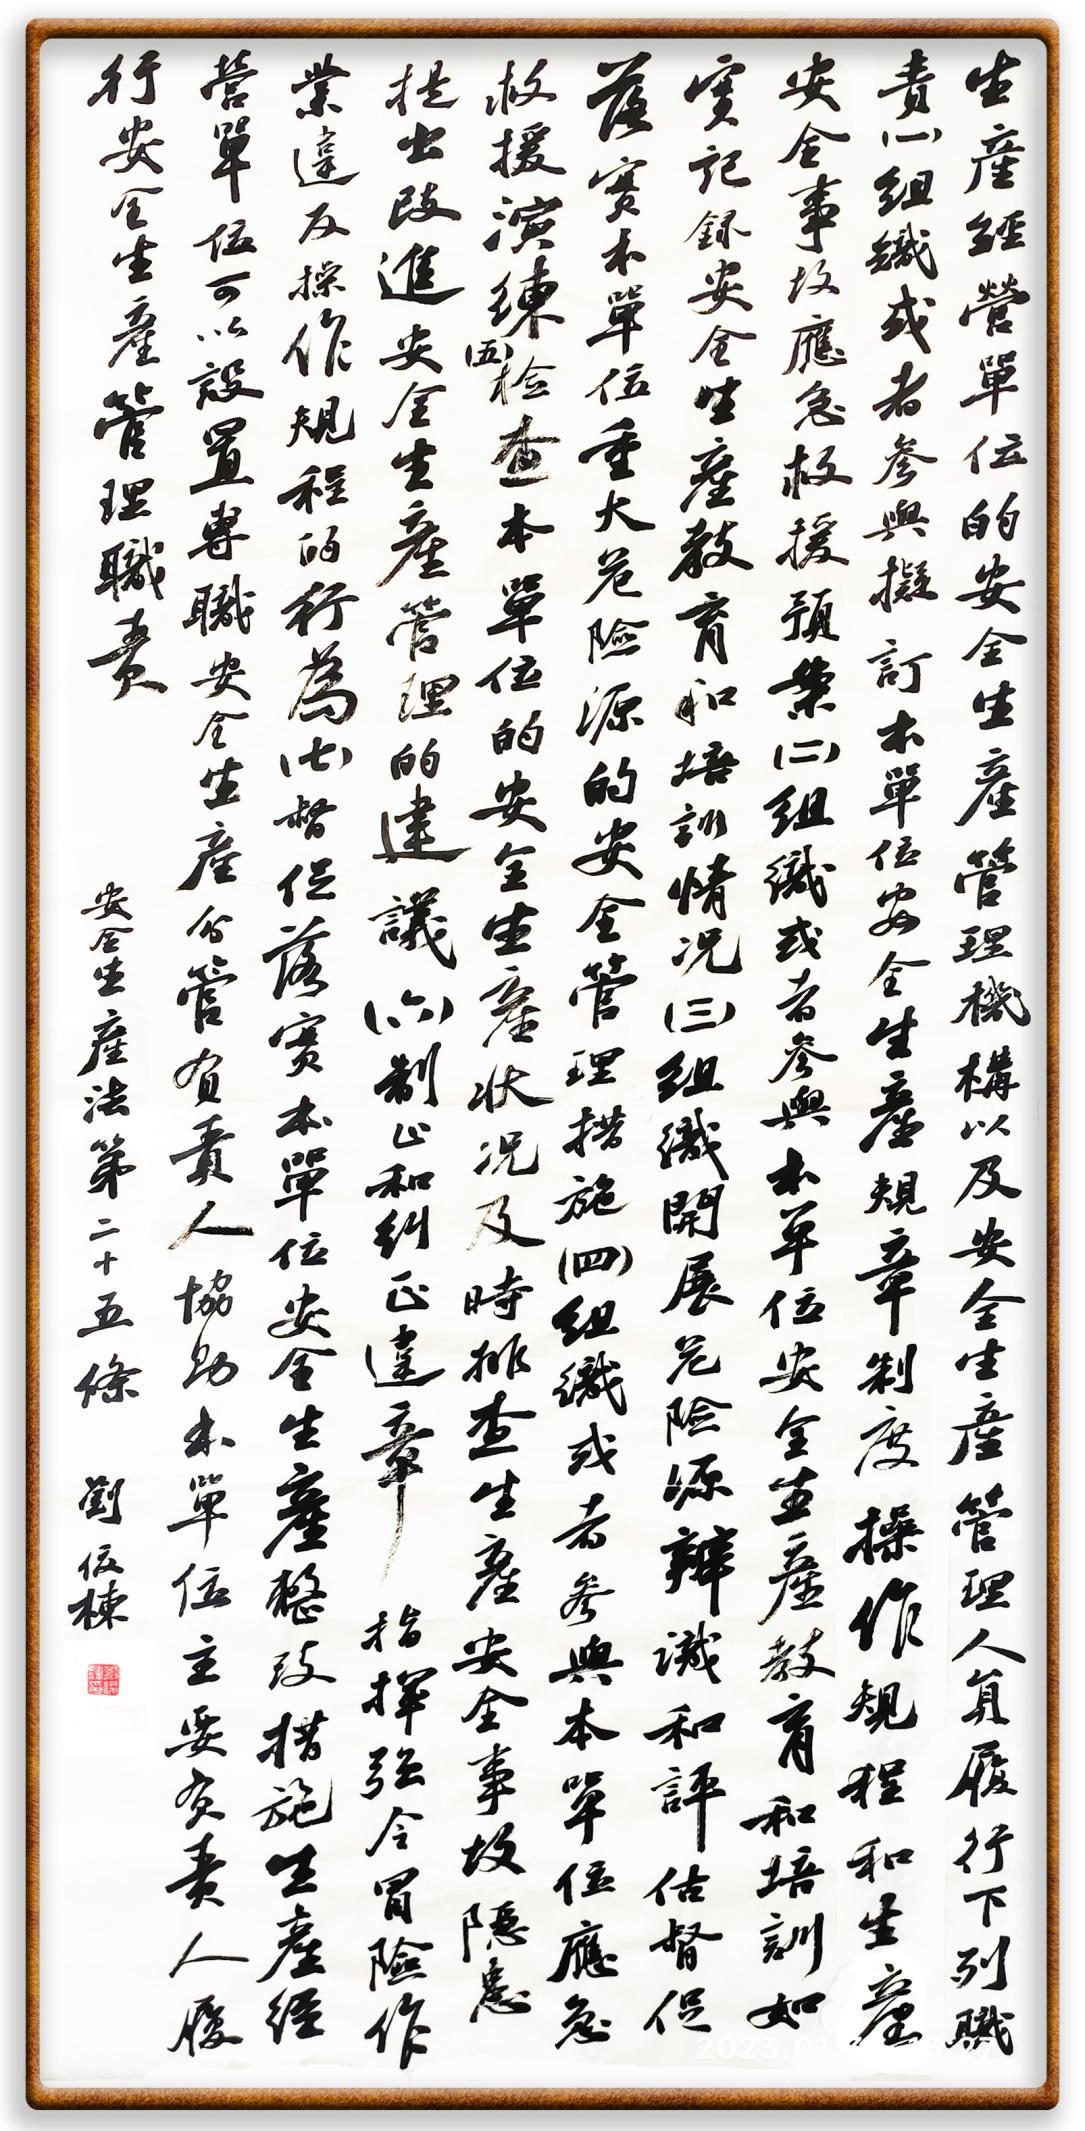 生產經營單位的安全生產管理機構以及安全生產管理人員履行下列職
責(一)組織或者參與擬訂本單位安全生產規章制度操作規程和生產
安全事故應急救援預案(二)組織或者參與本單位安全生產教育和培訓如
實記錄安全生產教育和培訓情況(三)組織開展危險源辨識和評估督促
落實本單位重大危險源的安全管理措施(四)組織或者參與本單位應急
救援演練(五)檢查本單位的安全生產狀況及時排查生產安全事故隱患
提出改進安全生產管理的建議(六)制止和糾正違章指揮強令冒險作
業違反操作規程的行為(七)督促落實本單位安全生產整改措施生產經
營單位可以設置專職安全生產分管負責人協助本單位主要負責人履
行安全生產管理職責
安全生產法第二十五條 劉俊棟
2023.01